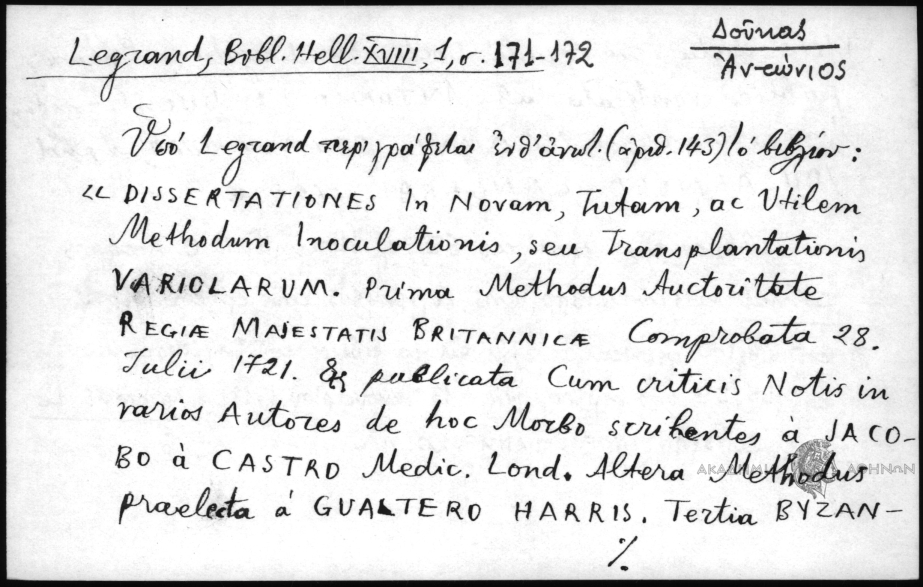 Δοῦκας
Ἀντώνιος
Legrand, Bibl. Hell. XVIII, 1, σ. 171-172
Ὑπό Legrand περιγράφεται ἐνθ' ἀνωτ. (ἀριθ. 143) τό βιβλίον:
“ DISSERTATIONES In Novam, Tutam, ac Utilem
Methodum Inoculationis, seu Transplantationis
VARIOLARUM. Prima Methodus Auctoritate
REGIÆ MAIESTATIS BRITANNICÆ Comprobata 28.
Julii 1721. & publicata Cum criticis Notis in
varios Autores de hoc Morbo scribentes à JACO-
BO à CASTRO Medic. Lond. Altera Methodus
praelecta á GUALTERO HARRIS. Tertia BYZAN-
ΑΚΑΔΗΜΙΑ ΑΘΗΝΩΝ
./.